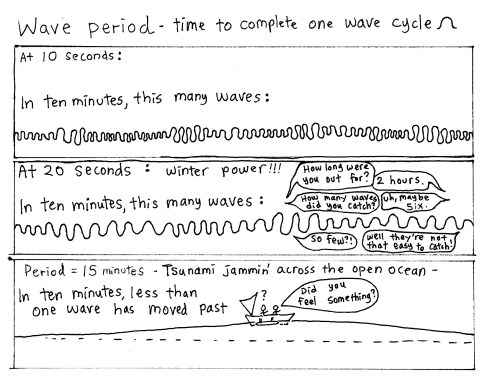 Wave period - time to complete one wave cycle
At 10 seconds:
In ten minutes, this many waves:
At 20 seconds : winter power!!!
How long were
you out for?
2 hours.
In ten minutes, this many waves:
How many waves
did you catch?
uh, maybe
six.
So few?!
well they're not
that easy to catch!
Period = 15 minutes - Tsunami jammin' across the open ocean -
In ten minutes, less than
one wave has moved past
?
Did you
feel something?